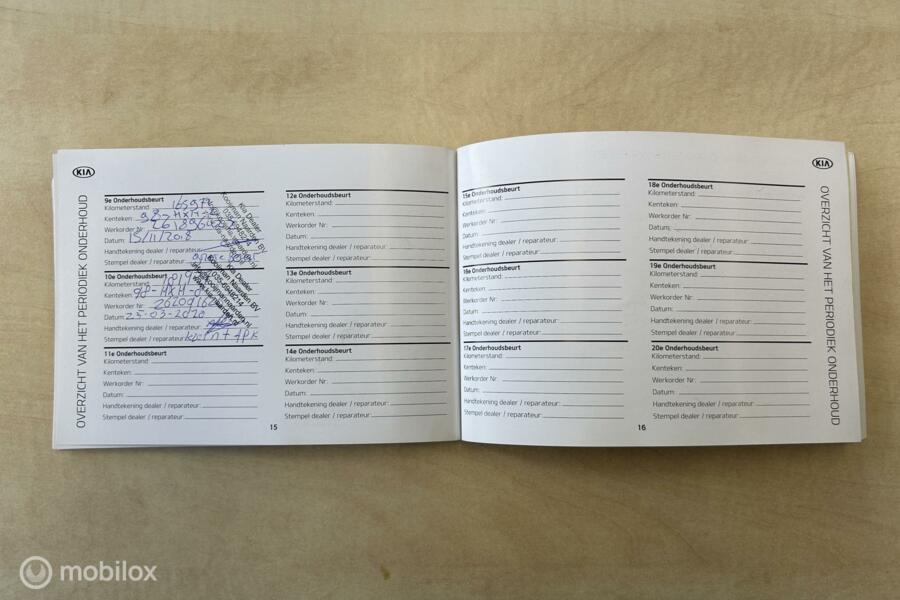 KIA
OVERZICHT VAN HET PERIODIEK ONDERHOUD
9e Onderhoudsbeurt
Kilometerstand:
Kenteken:
Werkorder Nr:
Datum: 15/11/2018
Handtekening dealer / reparateur:
Stempel dealer / reparateur:
10e Onderhoudsbeurt
Kilometerstand:
Kenteken:
Werkorder Nr:
Datum: 25-03-2020
Handtekening dealer / reparateur:
Stempel dealer / reparateur:
11e Onderhoudsbeurt
Kilometerstand:
Kenteken:
Werkorder Nr:
Datum:
Handtekening dealer / reparateur:
Stempel dealer / reparateur:
12e Onderhoudsbeurt
Kilometerstand:
Kenteken:
Werkorder Nr:
Datum:
Handtekening dealer / reparateur:
Stempel dealer / reparateur:
13e Onderhoudsbeurt
Kilometerstand:
Kenteken:
Werkorder Nr:
Datum:
Handtekening dealer / reparateur:
Stempel dealer / reparateur:
14e Onderhoudsbeurt
Kilometerstand:
Kenteken:
Werkorder Nr:
Datum:
Handtekening dealer / reparateur:
Stempel dealer / reparateur:
15
15e Onderhoudsbeurt
Kilometerstand:
Kenteken:
Werkorder Nr:
Datum:
Handtekening dealer / reparateur:
Stempel dealer / reparateur:
16e Onderhoudsbeurt
Kilometerstand:
Kenteken:
Werkorder Nr:
Datum:
Handtekening dealer / reparateur:
Stempel dealer / reparateur:
17e Onderhoudsbeurt
Kilometerstand:
Kenteken:
Werkorder Nr:
Datum:
Handtekening dealer / reparateur:
Stempel dealer / reparateur:
18e Onderhoudsbeurt
Kilometerstand:
Kenteken:
Werkorder Nr:
Datum:
Handtekening dealer / reparateur:
Stempel dealer / reparateur:
19e Onderhoudsbeurt
Kilometerstand:
Kenteken:
Werkorder Nr:
Datum:
Handtekening dealer / reparateur:
Stempel dealer / reparateur:
20e Onderhoudsbeurt
Kilometerstand:
Kenteken:
Werkorder Nr:
Datum:
Handtekening dealer / reparateur:
Stempel dealer / reparateur:
16
KIA
OVERZICHT VAN HET PERIODIEK ONDERHOUD
mobilox